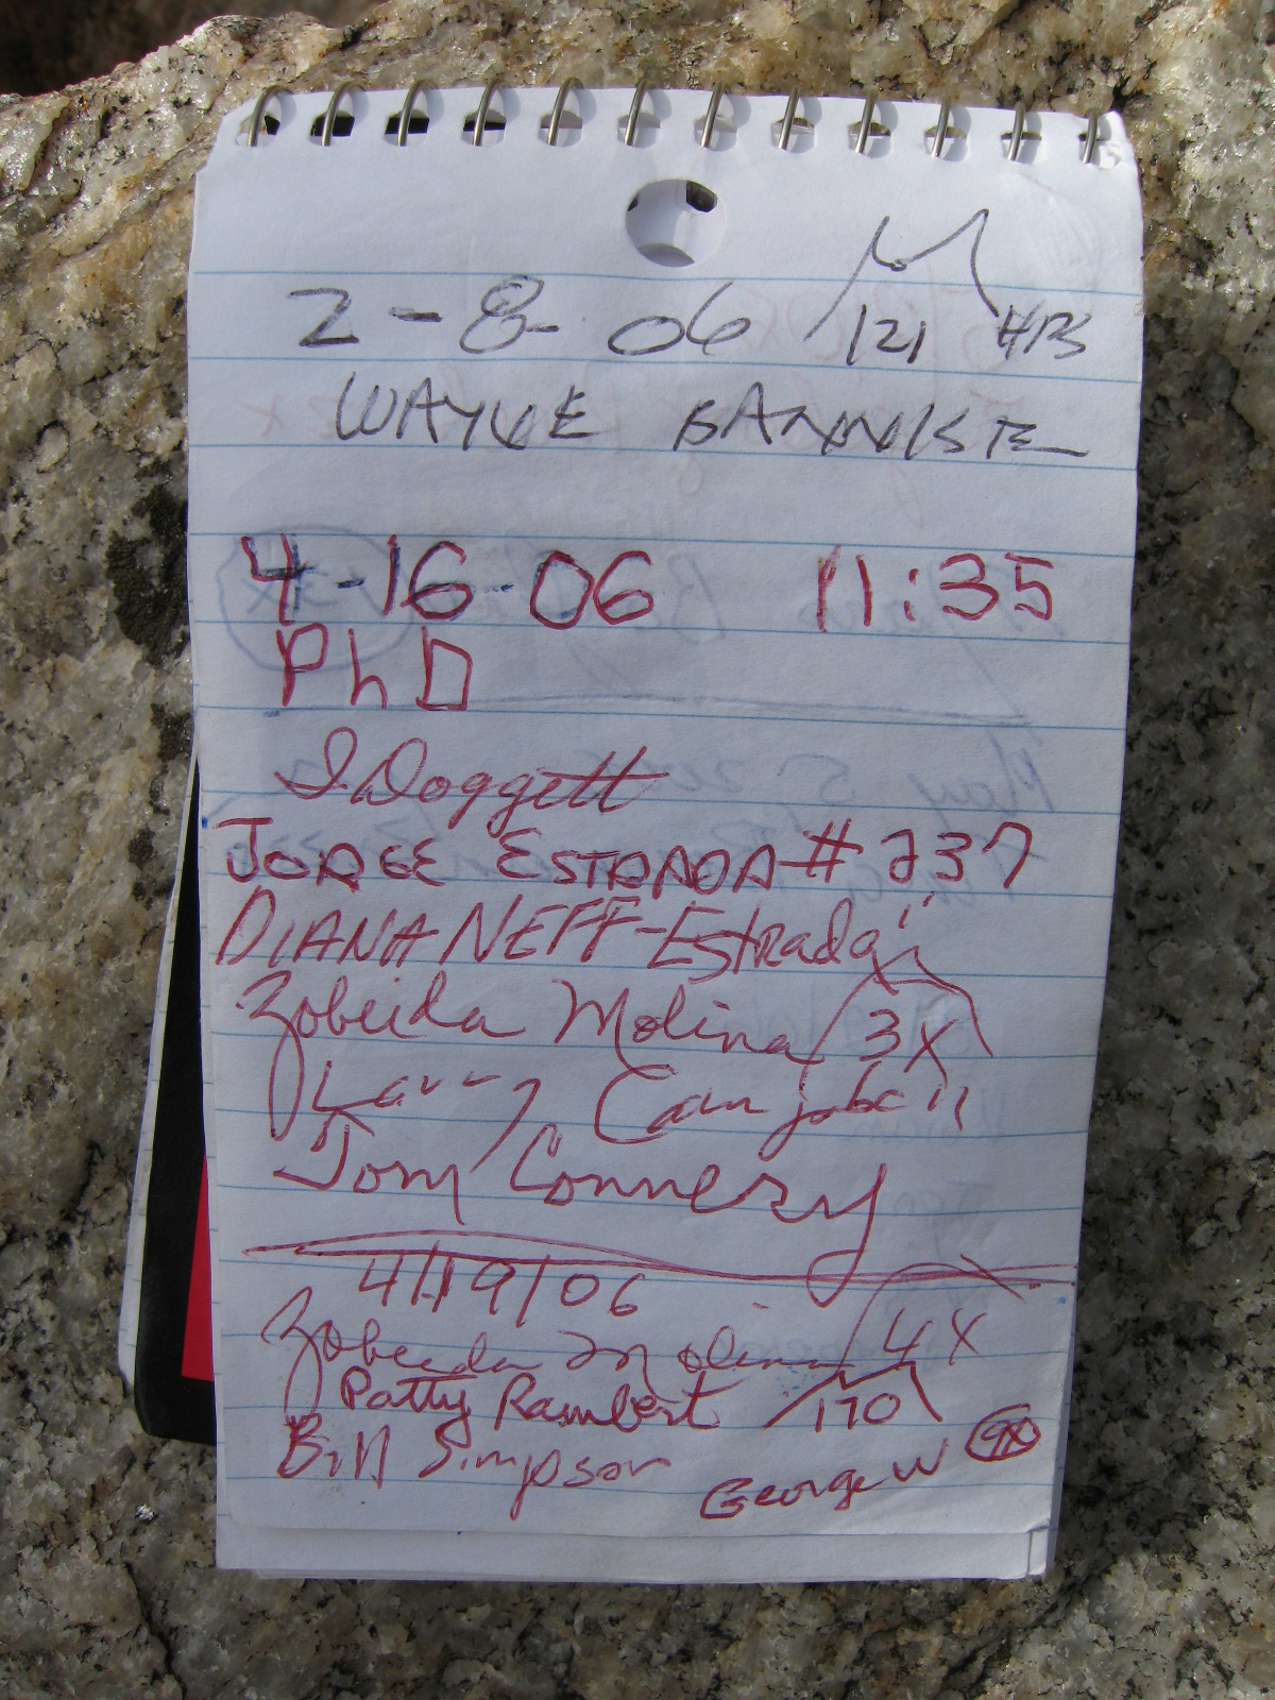 2-8-06 121 HPS
WAYNE BANNISTER
4-16-06 11:35
PhD
J. Doggett
JORGE ESTRADA #237
DIANA NEFF-Estrada
Zobeida Molina 3X
Larry Campbell
Tom Connery
4/19/06
Zobeida Molina 4X
Patty Rambert 170
Bill Simpson
George W 9X